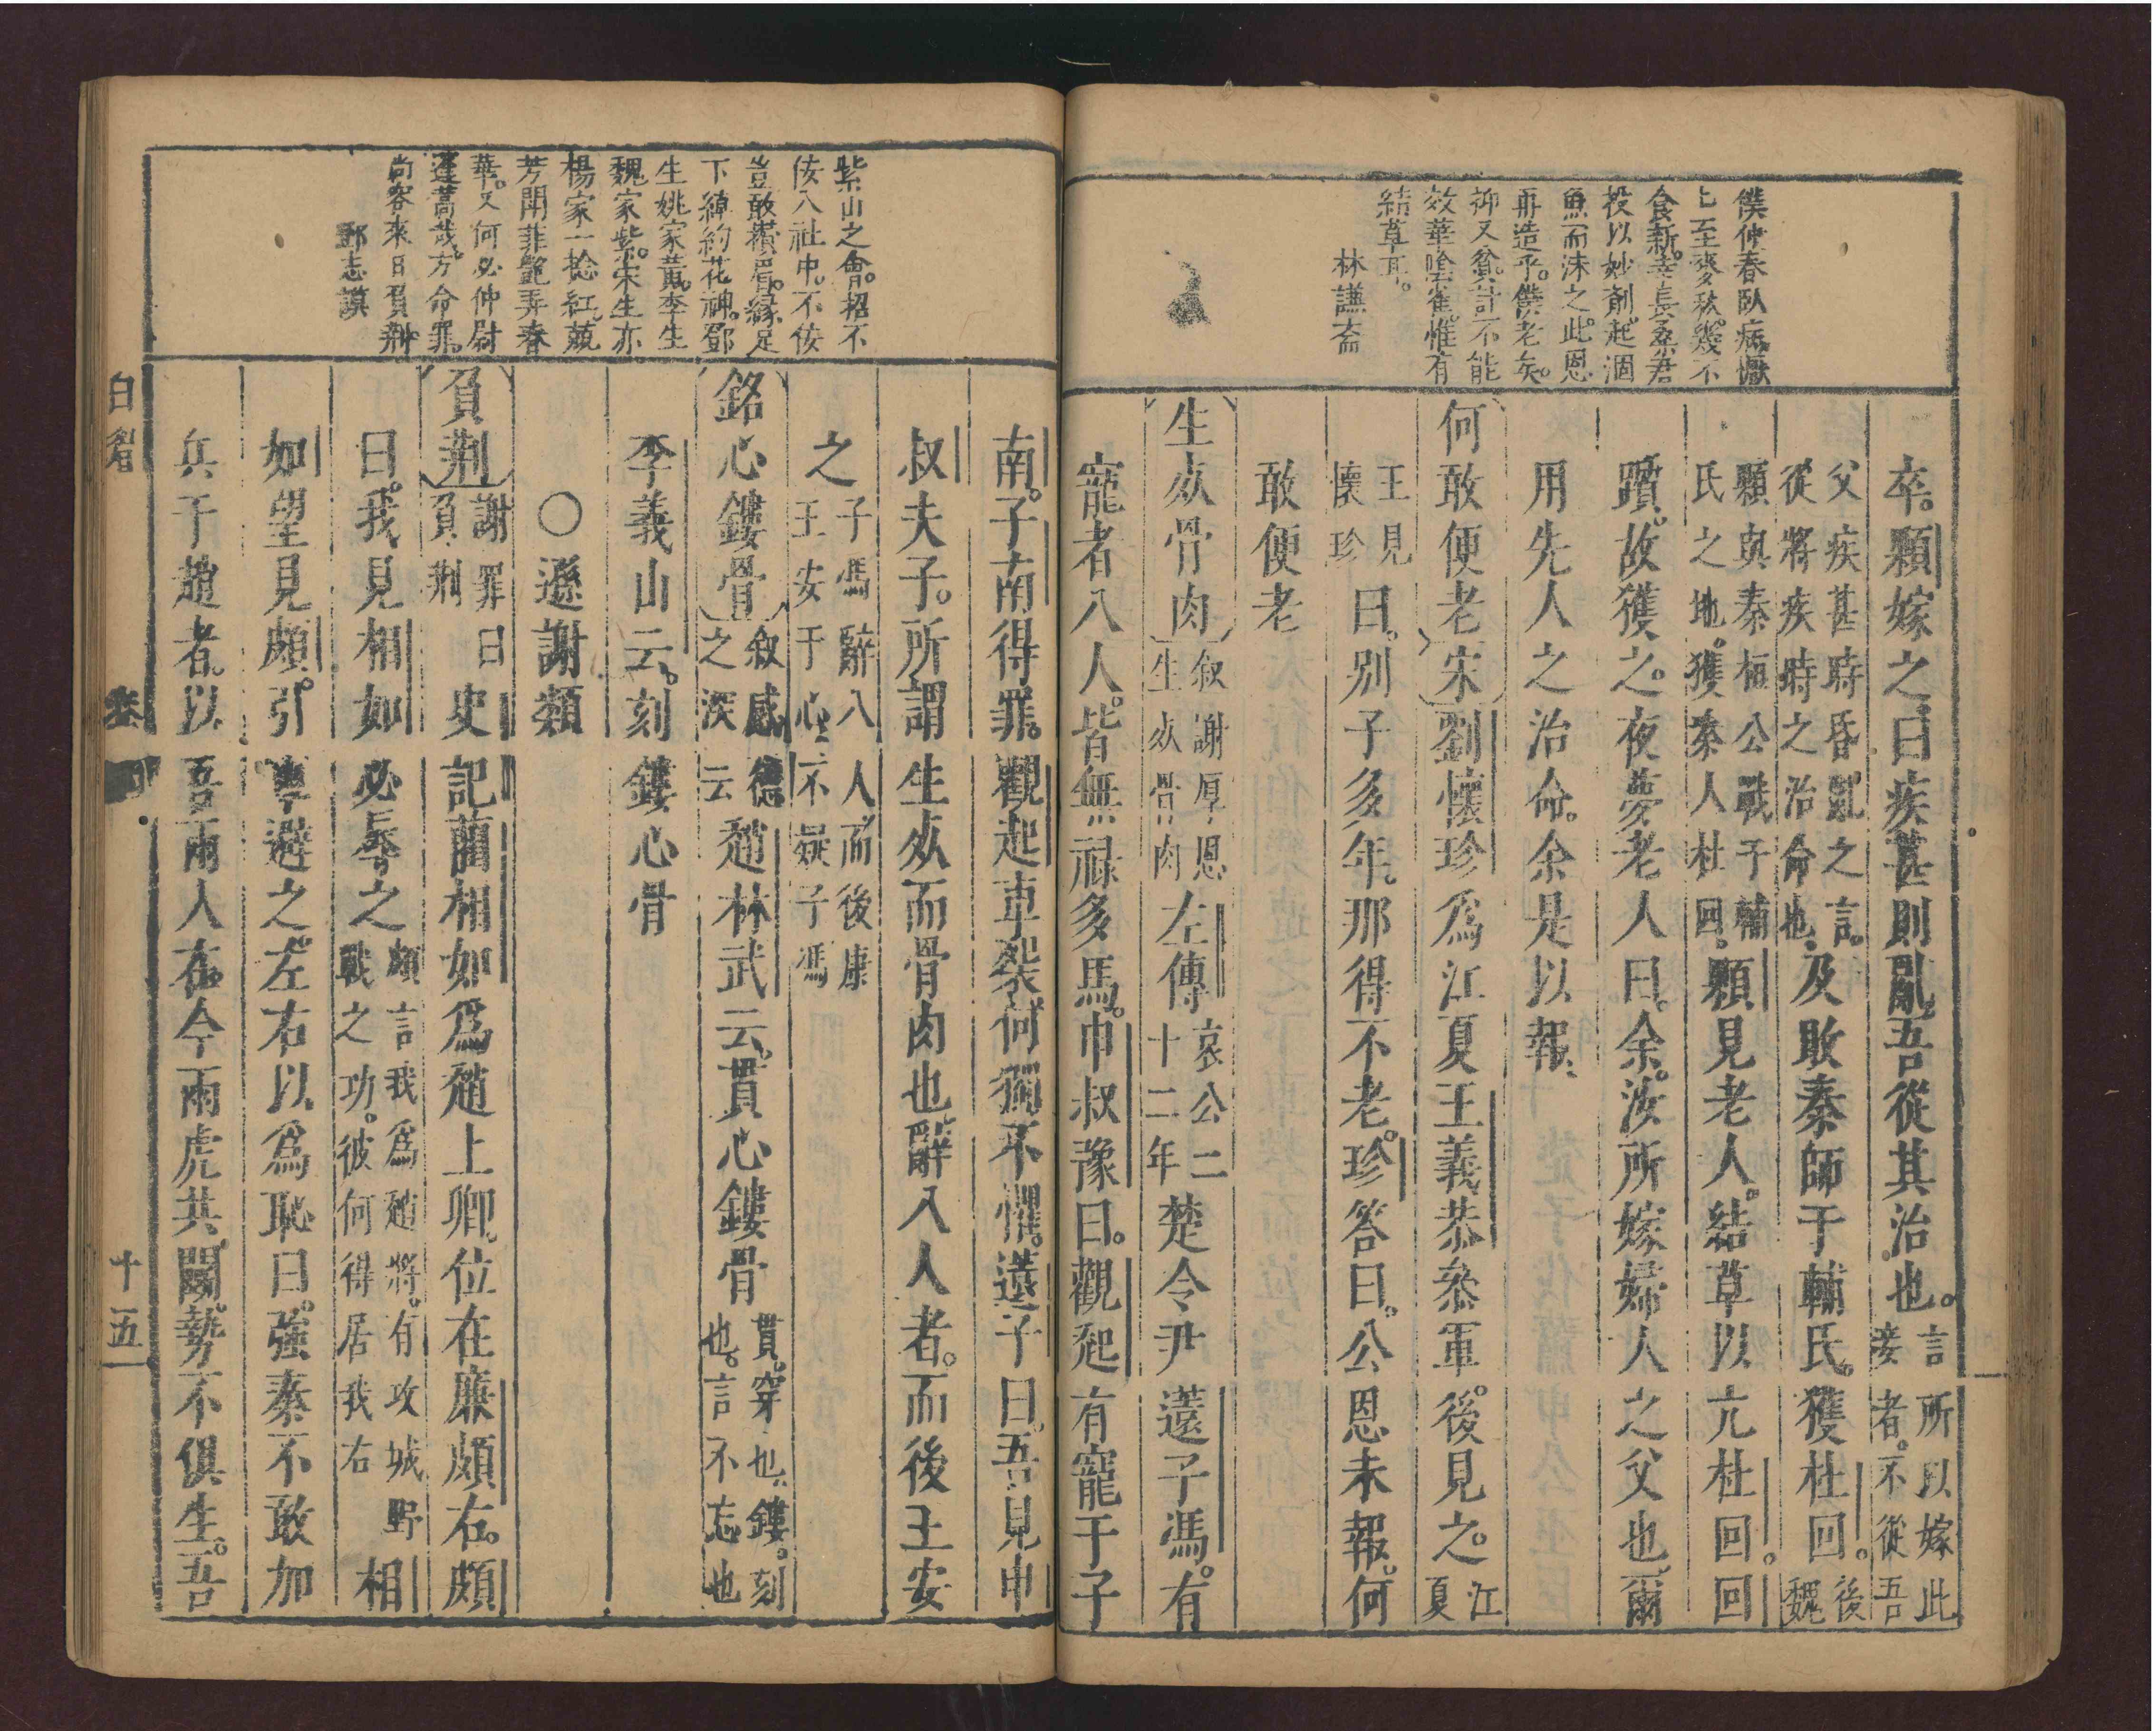 僕仲春臥病慨
七至麥秋幾不
食新幸長桑君
投以妙劑起涸
魚而沫之此恩
再造乎僕老矣
抑又貧計不能
效華陰雀惟有
結草耳
林謙齋
卒顆嫁之曰疾甚則亂吾從其治也言所以嫁此妾者不從吾
父疾甚時昏亂之言從將疾時之治命也及敗秦師于輔氏獲杜回後魏
顆與桓秦桓公戰于輔氏之地獲秦人杜回顆見老人結草以亢杜回回
躓故獲之夜夢老人曰余汝所嫁婦人之父也爾
用先人之治命余是以報
何敢便老宋劉懷珍爲江夏王義恭叅軍後見之江夏
王見懷珍曰別子多年那得不老珍答曰公恩未報何
敢便老
生𣦸骨肉叙謝厚恩生𣦸骨肉左傳哀公二十二年楚令尹薳子馮有
寵者八人皆無祿多馬巾叔豫曰觀起有寵于子
紫山之會招不
佞八社中不佞
豈敢攢眉緣足
下綽約花神鄧
生姚家黃李生
魏家紫宋生亦
楊家一捻紅競
芳鬬菲豔弄春
華又何必仲尉
蓬蒿哉方命罪
尚容來日負荆
鄧志謨
南子南得罪觀起車裂何獨不懼薳子曰吾見申
叔夫子所謂生𣦸而骨肉也辭八人者而後王安
之子馮辭八人而後康王安于心不疑子馮
銘心鏤骨叙感德之深云云趙林武云貫心鏤骨貫穿也鏤刻也言不忘也
李義山云刻鏤心骨
○遜謝類
負荆謝罪曰負荆史記藺相如爲趙上卿位在廉頗右頗
曰我見相如必辱之頗言我爲趙將有攻城野戰之功彼何得居我右相
如望見頗引車避之左右以爲恥曰強秦不敢加
兵于趙者以吾兩人在今兩虎共鬬勢不俱生吾
白眉
卷
十五